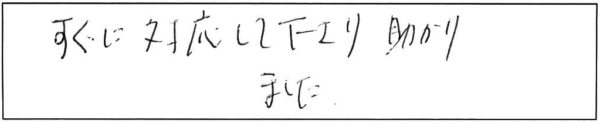 すぐに対応して下さり助かり
ました